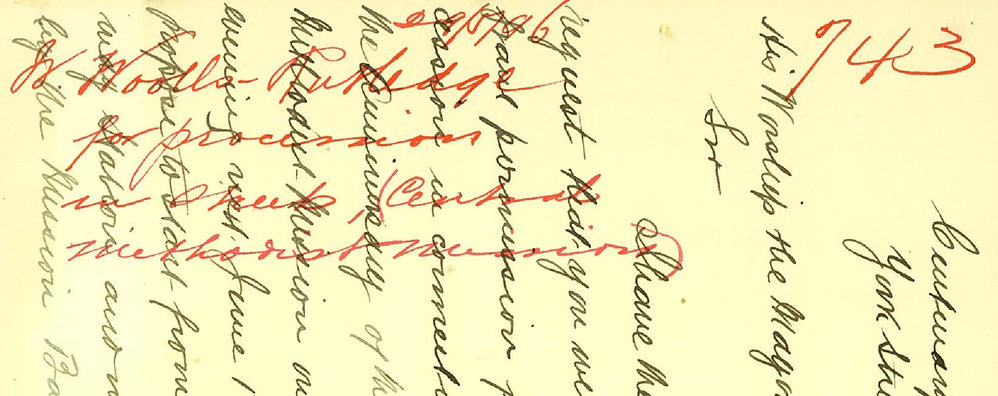 743
W Woolls Rutledge
for procession
in Streets, (Central
Methodist Mission)
York Stre
His Worship the Mayor
Sir
I have the
request that you wi
grant permission f
cession in connecti
the Anniversary of th
Methodist Mission on
evening next June 1
propose to start from
and
by the Mission Ba